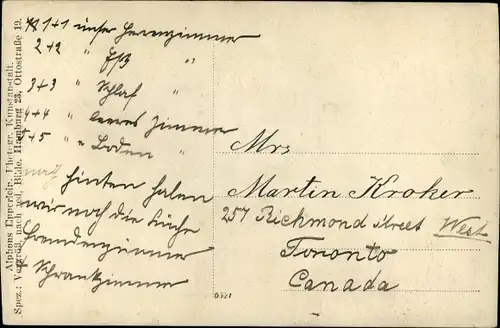 1+1 unser Herrenzimmer
2+2 " Eß "
3+3 " Schlaf "
4+4 " leeres Zimmer
5+5 " Boden "
nach hinten haben
wir noch die Küche
Fremdenzimmer
Schrankzimmer
Mrs
Martin Kroker
257 Richmond street West
Toronto
Canada
Alphons Kunstanstalt.
Spez.: nach Bilde. Hamburg 23, Ottostraße 19.